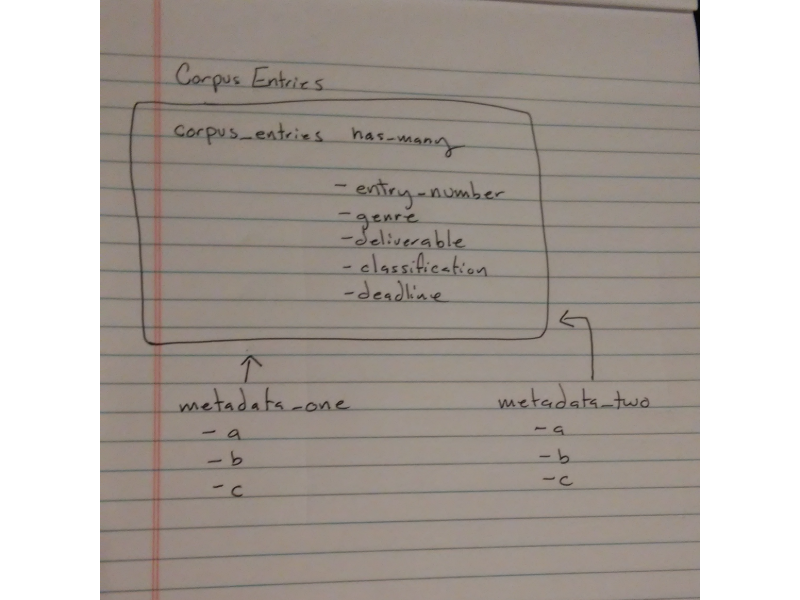 Corpus Entries
corpus_entries has_many
- entry_number
- genre
- deliverable
- classification
- deadline
metadata_one
- a
- b
- c
metadata_two
- a
- b
- c